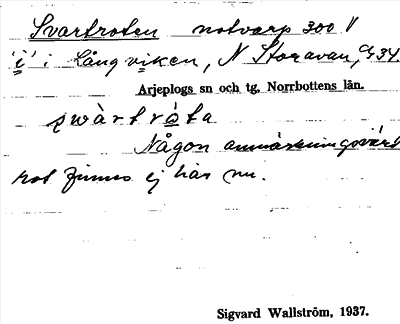 Svartroten notvarp 300 V
'i' i Långviken, N Storavan, G 34
Arjeplogs sn och tg. Norrbottens län.
swàrtròta
Någon anmärkningsvärd
rot finns ej här nu.
Sigvard Wallström, 1937.